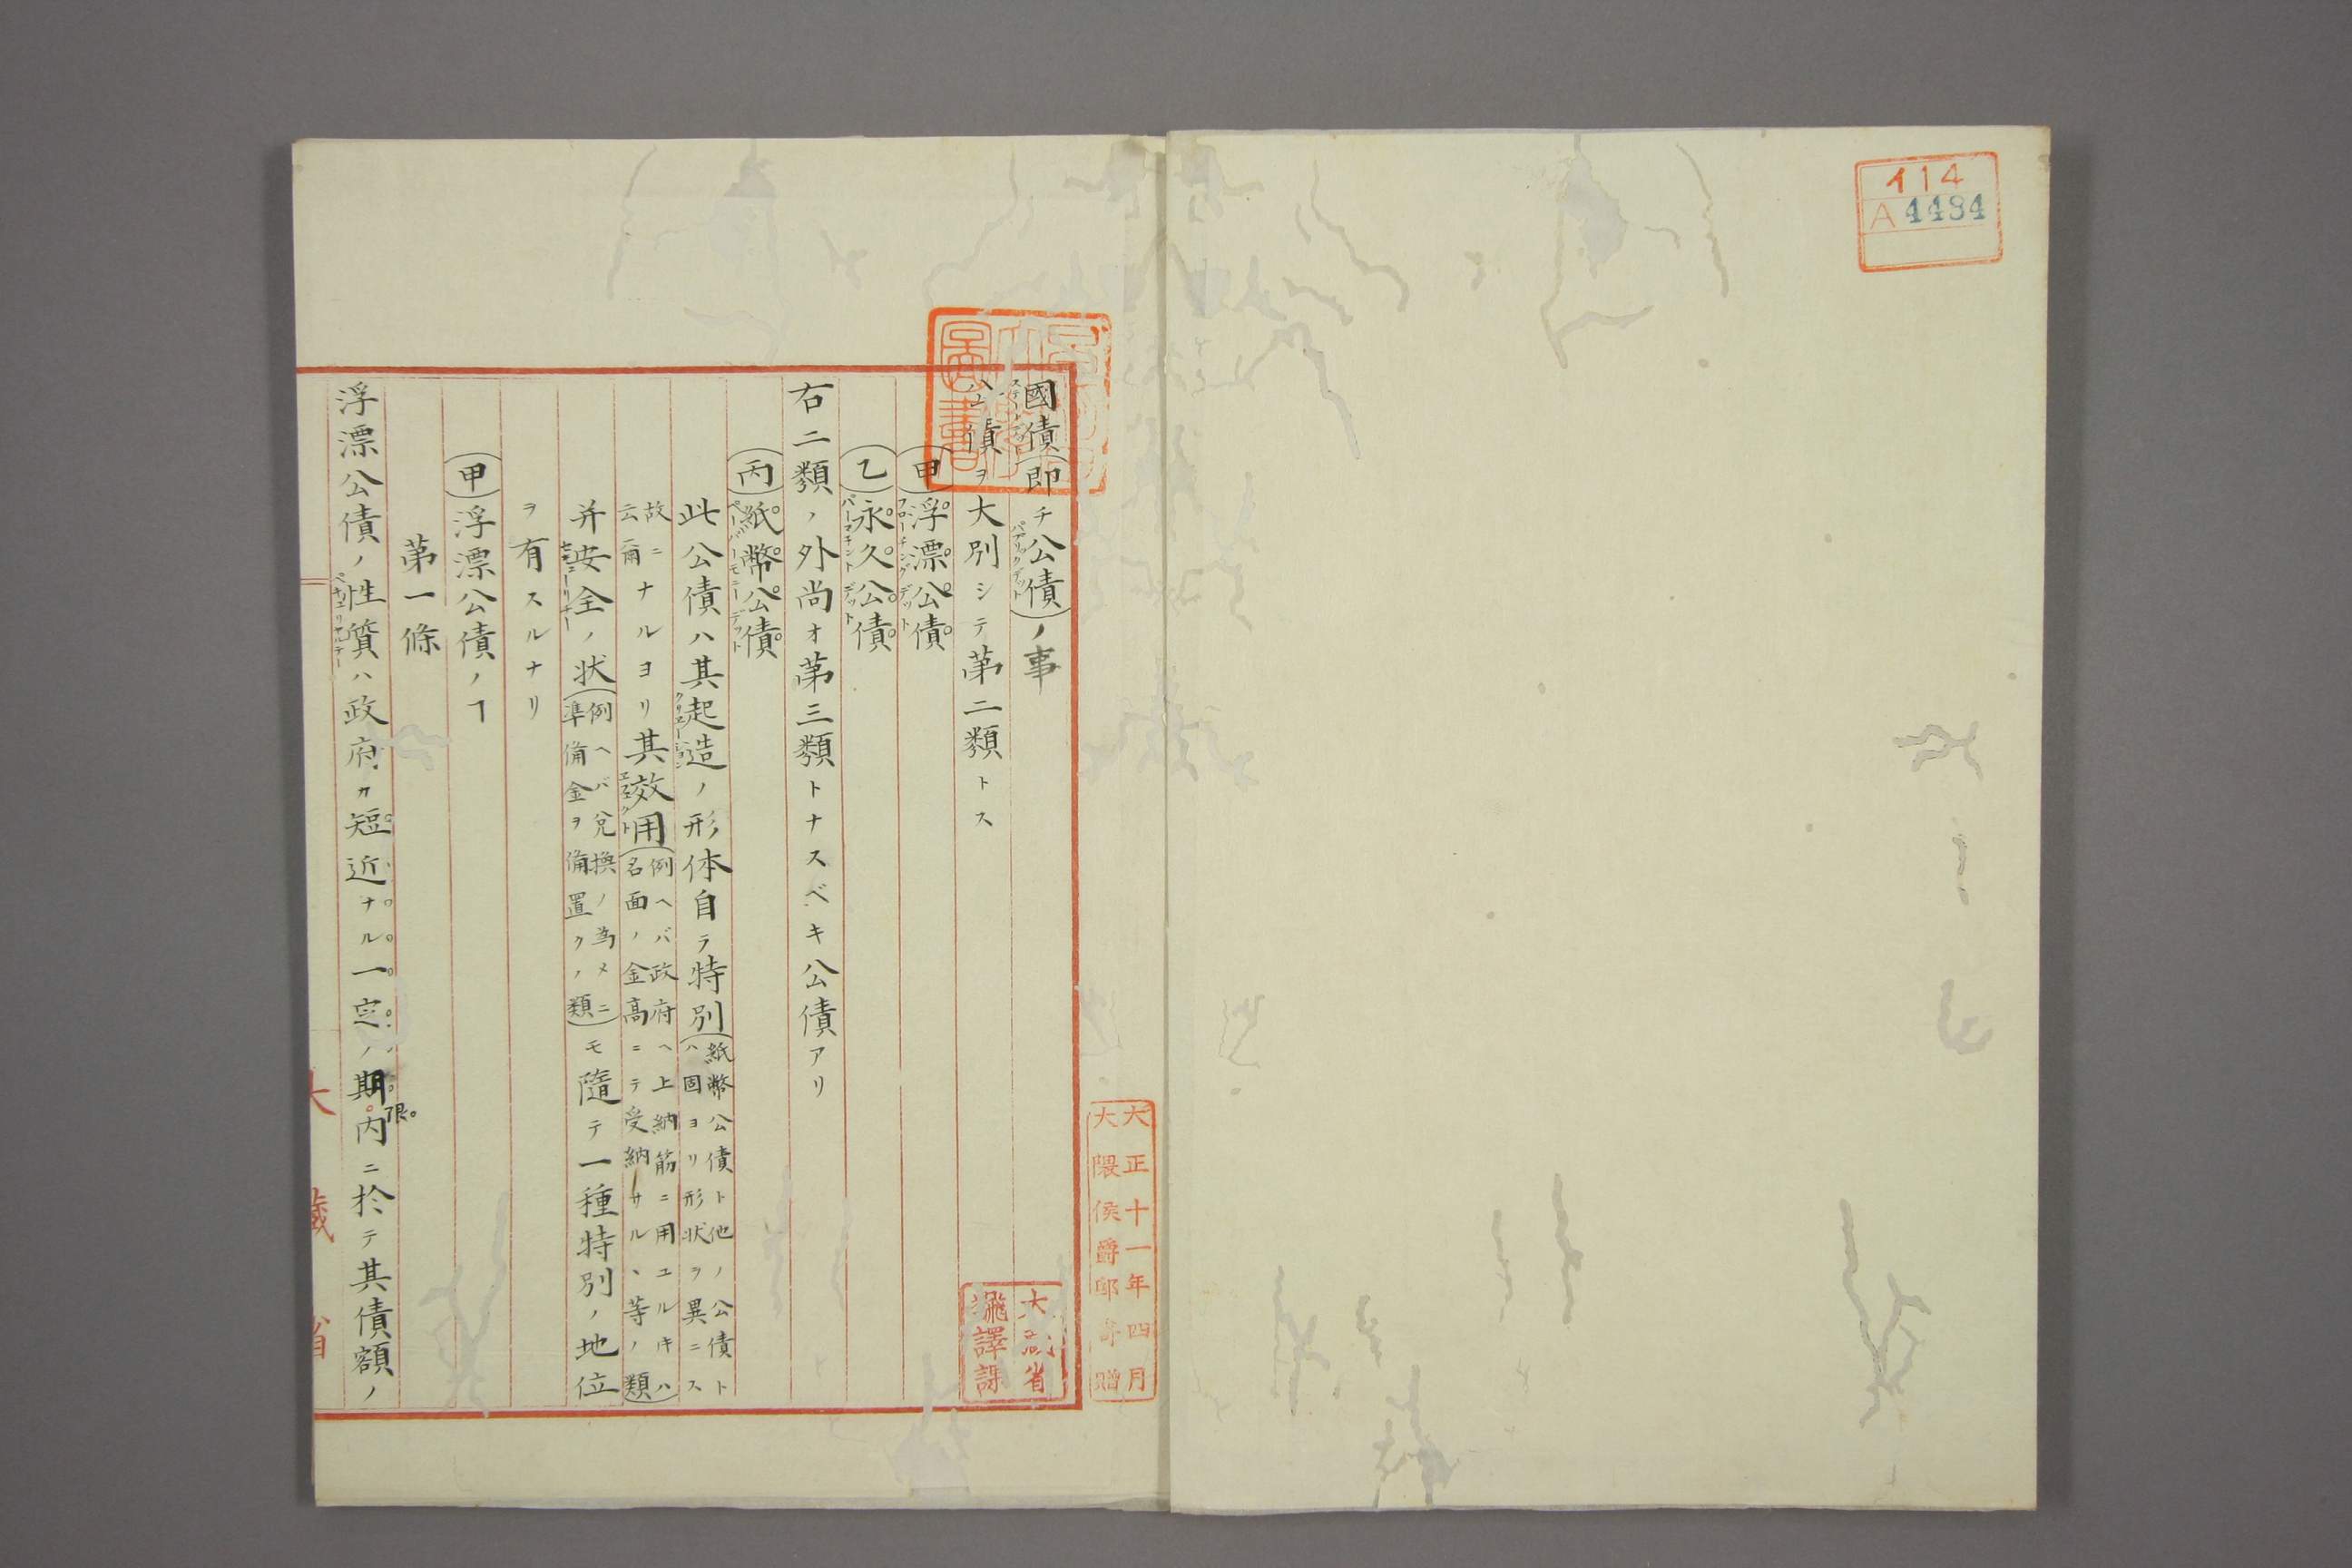 イ14
A 4484
大正十一年四月
大隈侯爵邸寄贈
國債(即チ公債)ノ事
パブリックデット
公債ヲ大別シテ第二類トス
(甲)浮漂公債
フローチングデット
(乙)永久公債
パーマネントデット
右二類ノ外尚オ第三類トナスベキ公債アリ
(丙)紙幣公債
ペーパーモニーデット
此公債ハ其起造ノ形体自ラ特別(紙幣公債ト他ノ公債ト
ハ固ヨリ形状ヲ異ニス
故ニ
云爾
ナルヨリ其效用(例ヘバ政府ヘ上納筋ニ用ユルキハ
名面ノ金高ニテ受納サル、等ノ類)
并安全ノ状(例ヘバ兌換ノ為メニ
準備金ヲ備置クノ類)モ隨テ一種特別ノ地位
ヲ有スルナリ
(甲)浮漂公債ノヿ
第一條
浮漂公債ノ性質ハ政府カ短近ナル一定ノ期限内ニ於テ其債額ノ
大藏省
飜譯課
大藏省